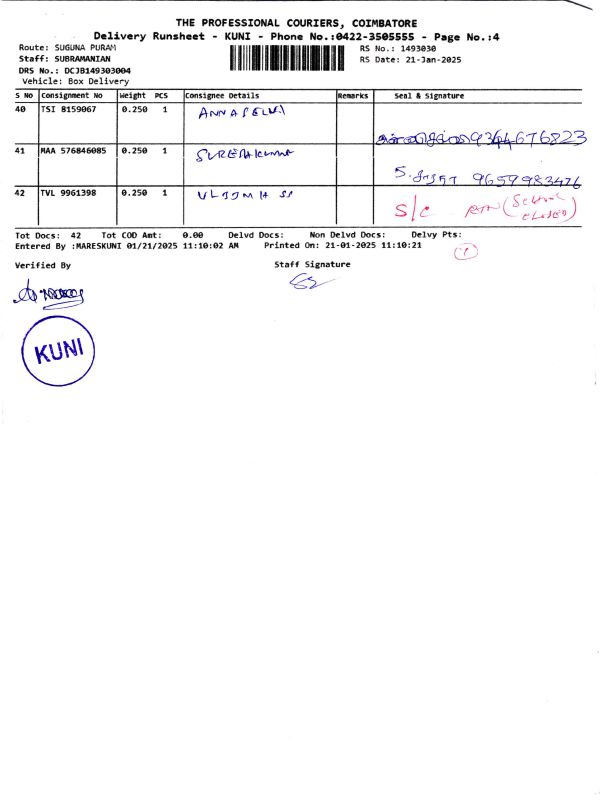 THE PROFESSIONAL COURIERS, COIMBATORE
Delivery Runsheet - KUNI - Phone No.:0422-3505555 - Page No.:4
Route: SUGUNA PURAM RS No.: 1493030
Staff: SUBRAMANIAN RS Date: 21-Jan-2025
DRS No.: DCJB149303004
Vehicle: Box Delivery
S NO Consignment No Weight PCS Consignee Details Remarks Seal & Signature
40 TSI 8159067 0.250 1 ANNASELVI
9344676823
41 MAA 576846085 0.250 1 SURESHKUMAR
9659983476
42 TVL 9961398 0.250 1
S/C RTN (SCHOOL CLOSED)
Tot Docs: 42 Tot COD Amt: 0.00 Delvd Docs: Non Delvd Docs: Delvy Pts:
Entered By :MARESKUNI 01/21/2025 11:10:02 AM Printed On: 21-01-2025 11:10:21
Verified By Staff Signature
KUNI